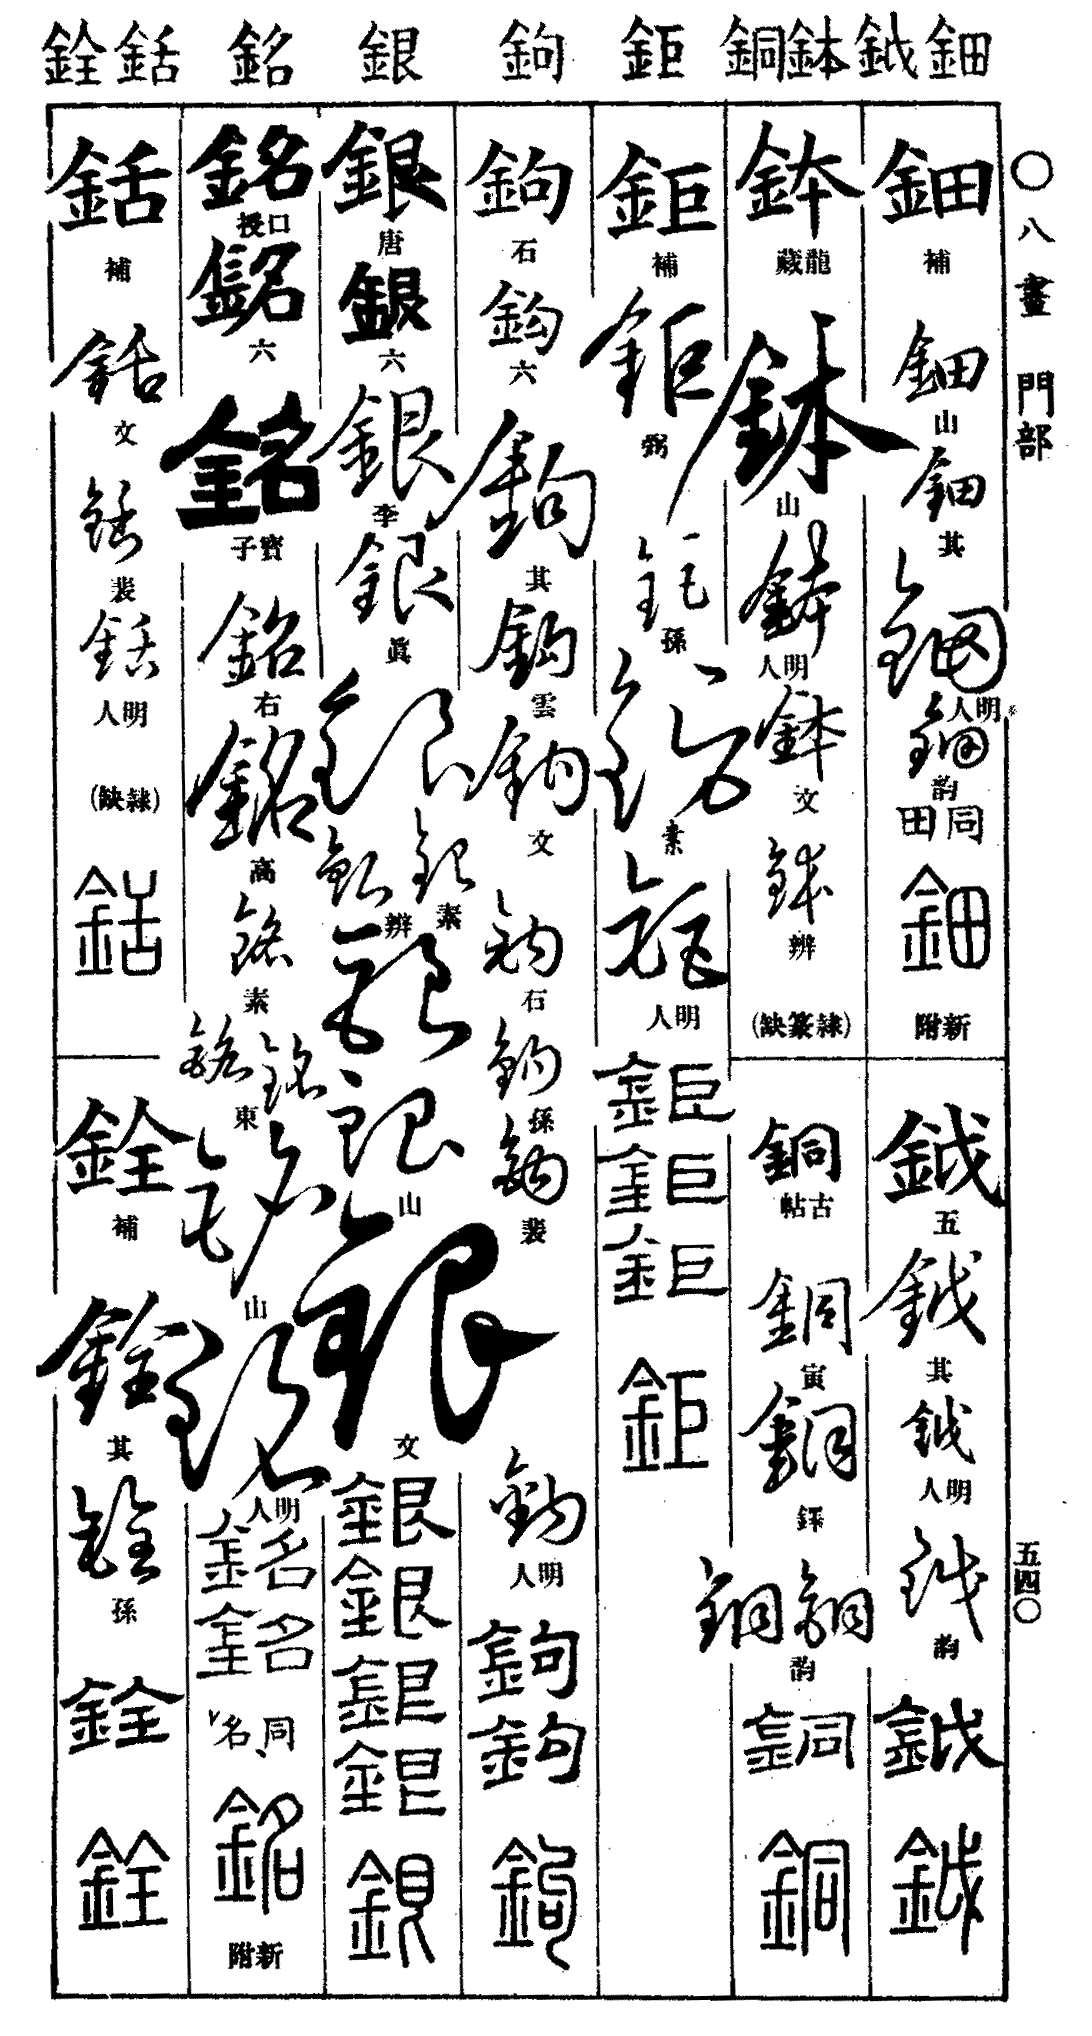 鈿 鉞 鉢 銅 鉅 鉤 銀 銘 銛 銓
〇八畫 門部
五四〇
鈿 補
鈿 山
鈿 其
鈿 明人
鈿 韵
同田
鈿 新附
鉞 五
鉞 其
鉞 明人
鉞 韵
鉞
鉞
鉢 龍藏
鉢 山
鉢 明人
鉢 文
鉢 辨
(隷篆缺)
銅 古帖
銅 寅
銅
銅 銅 韵
銅
銅
鉅 補
鉅 弼
鉅 孫
鉅 素
鉅 明人
鉅
鉅
鉅
鉅
鉤 石
鉤 六
鉤 其
鉤 雲
鉤 文
鉤 石
鉤 孫
鉤 裴
鉤 明人
鉤
鉤
鉤
銀 唐
銀 六
銀 李
銀 眞
銀
銀 素
銀 辨
銀
銀 山
銀 文
銀
銀
銀
銀
銀
銘 口授
銘 六
銘 寶子
銘 右
銘 高
銘 素
銘 銘 東
銘 山
銘 明人
銘
銘
同名
銘 新附
銛 補
銛 文
銛 裴
銛 明人
(隷缺)
銛
銓 補
銓 其
銓 孫
銓
銓